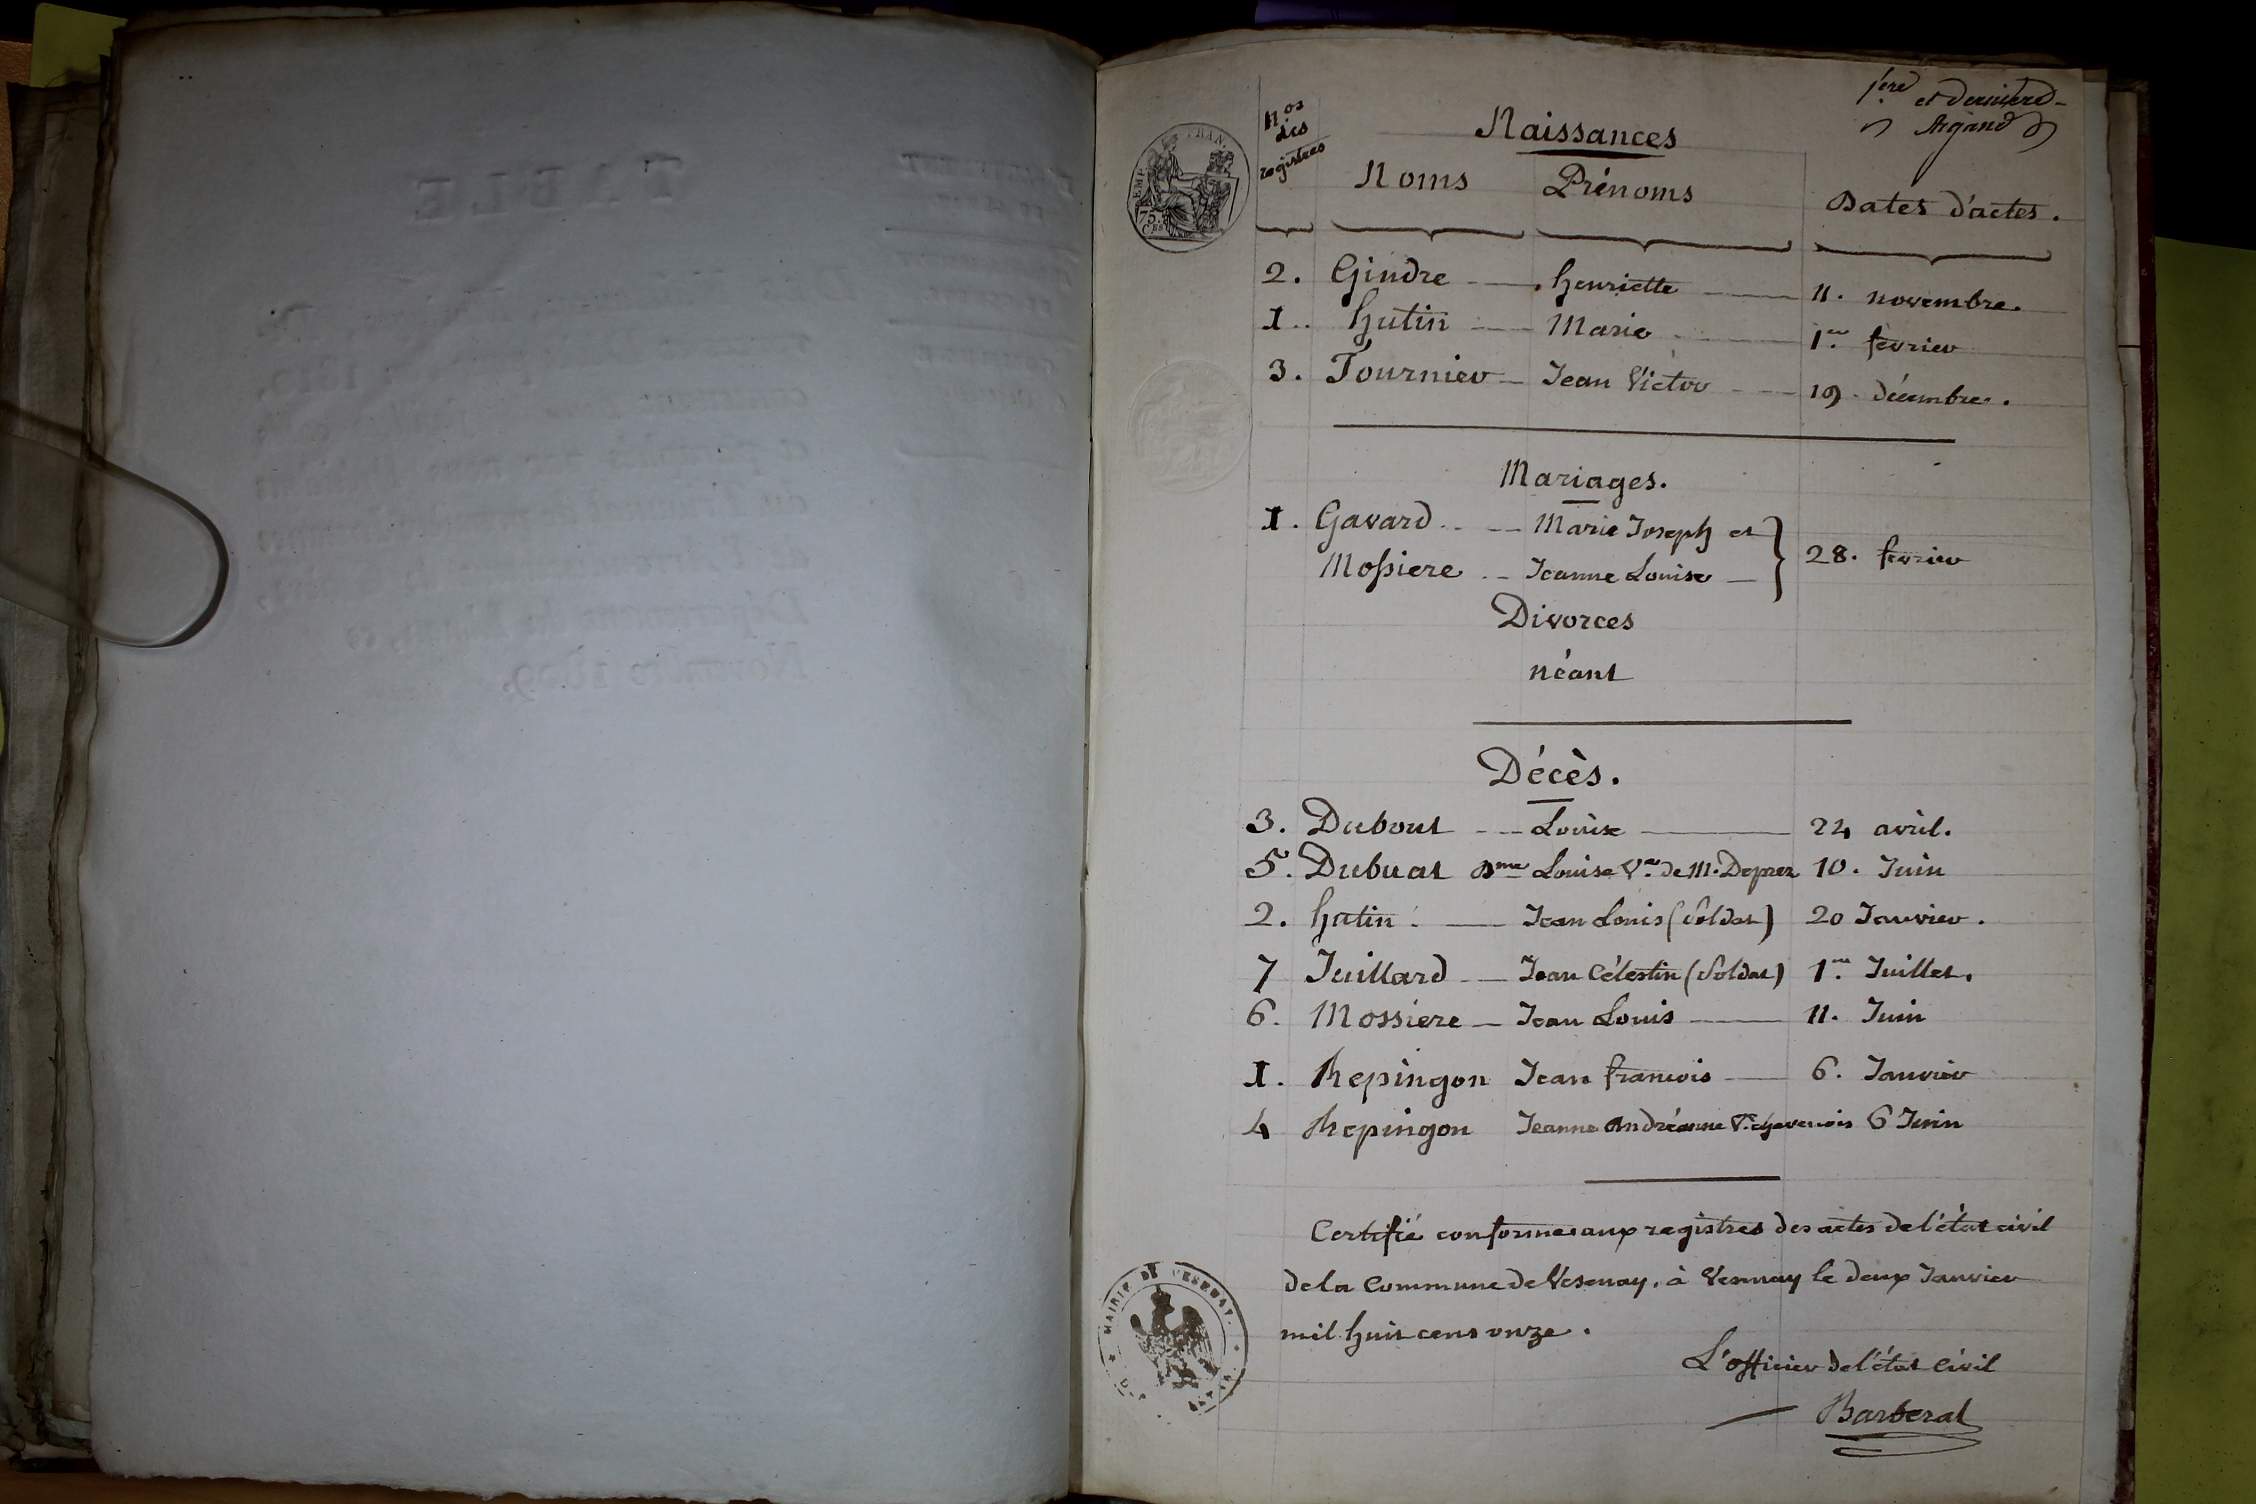 1.ere et derniere
Argand
N.os
des
registres
Naissances
Noms Prénoms Dates d'actes.
75.
Ces
2. Gindre henriette 11. novembre.
1. hutin Marie 1.er fevrier
3. Fournier Jean Victor 19. décembre.
Mariages.
1. Gavard Marie Joseph et
28. fevrier
Mossiere Jeanne Louise
Divorces
néant
Décès.
3. Dubout Louise 24 avril.
5. Dubuat Dme Louise Ve. de M. Deprez 10. Juin
2. hutin Jean Louis (Soldat) 20 Janvier.
7 Juillard Jean Célestin (Soldat) 1.er Juillet.
6. Mossiere Jean Louis 11. Juin
1. Repingon Jean francois 6. Janvier
4 Repingon Jeanne Andréanne 6 Juin
Certifié conforme aux registres des actes de l'état civil
de la Commune de Vesenay, à Vesenay le deux Janvier
mil huit cent onze.
L'officier de l'état Civil
Barberat
MAIRIE DE VESENAY.
TABLE